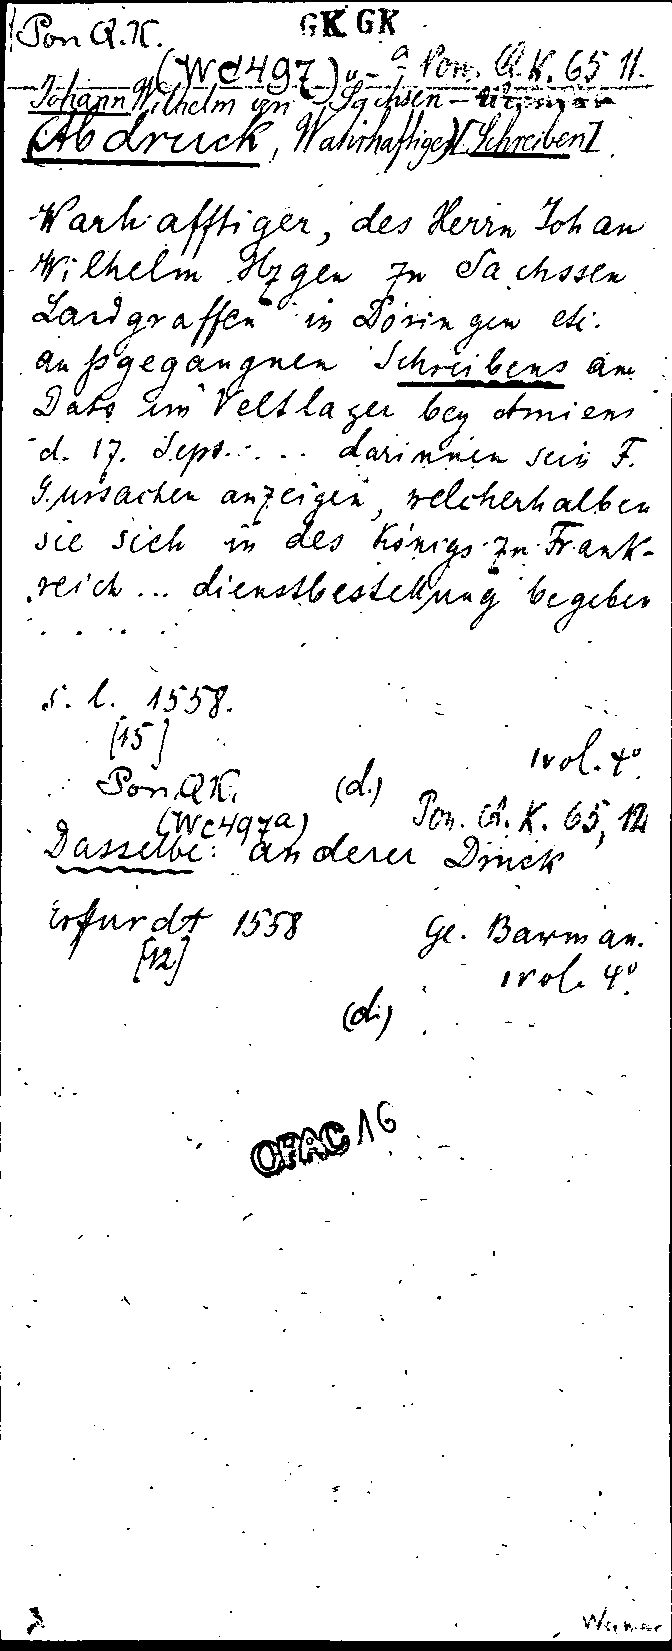 GK GK
Pon Q.K.
(Wc497) a Pon. Q.K. 65 11.
Johann Wilhelm von Sachsen-Weimar
(Abdruck, Wahrhaftiger) [Schreiben]
Warhafftiger, des Herrn Johan
Wilhelm Hzgen zu Sachssen
Landgraffen in Döringen etc.
außgegangnen Schreibens am
Dato im Veltlager bey Amiens
d. 17. Sept. ... darinnen sein F.
G. ursachen anzeigen, welcherhalben
sie sich in des Königs zu Frank-
reich ... dienstbestellung begeben
.....
s. l. 1558.
[15]
1 vol. 4°
Pon. QK. (d.)
(Wc497a) Pon. Q. K. 65, 12
Dasselbe: anderer Druck
Erfurdt 1558 Ge. Bawman.
[12] 1 vol. 4°
(d.)
OPAC 16
Weimar